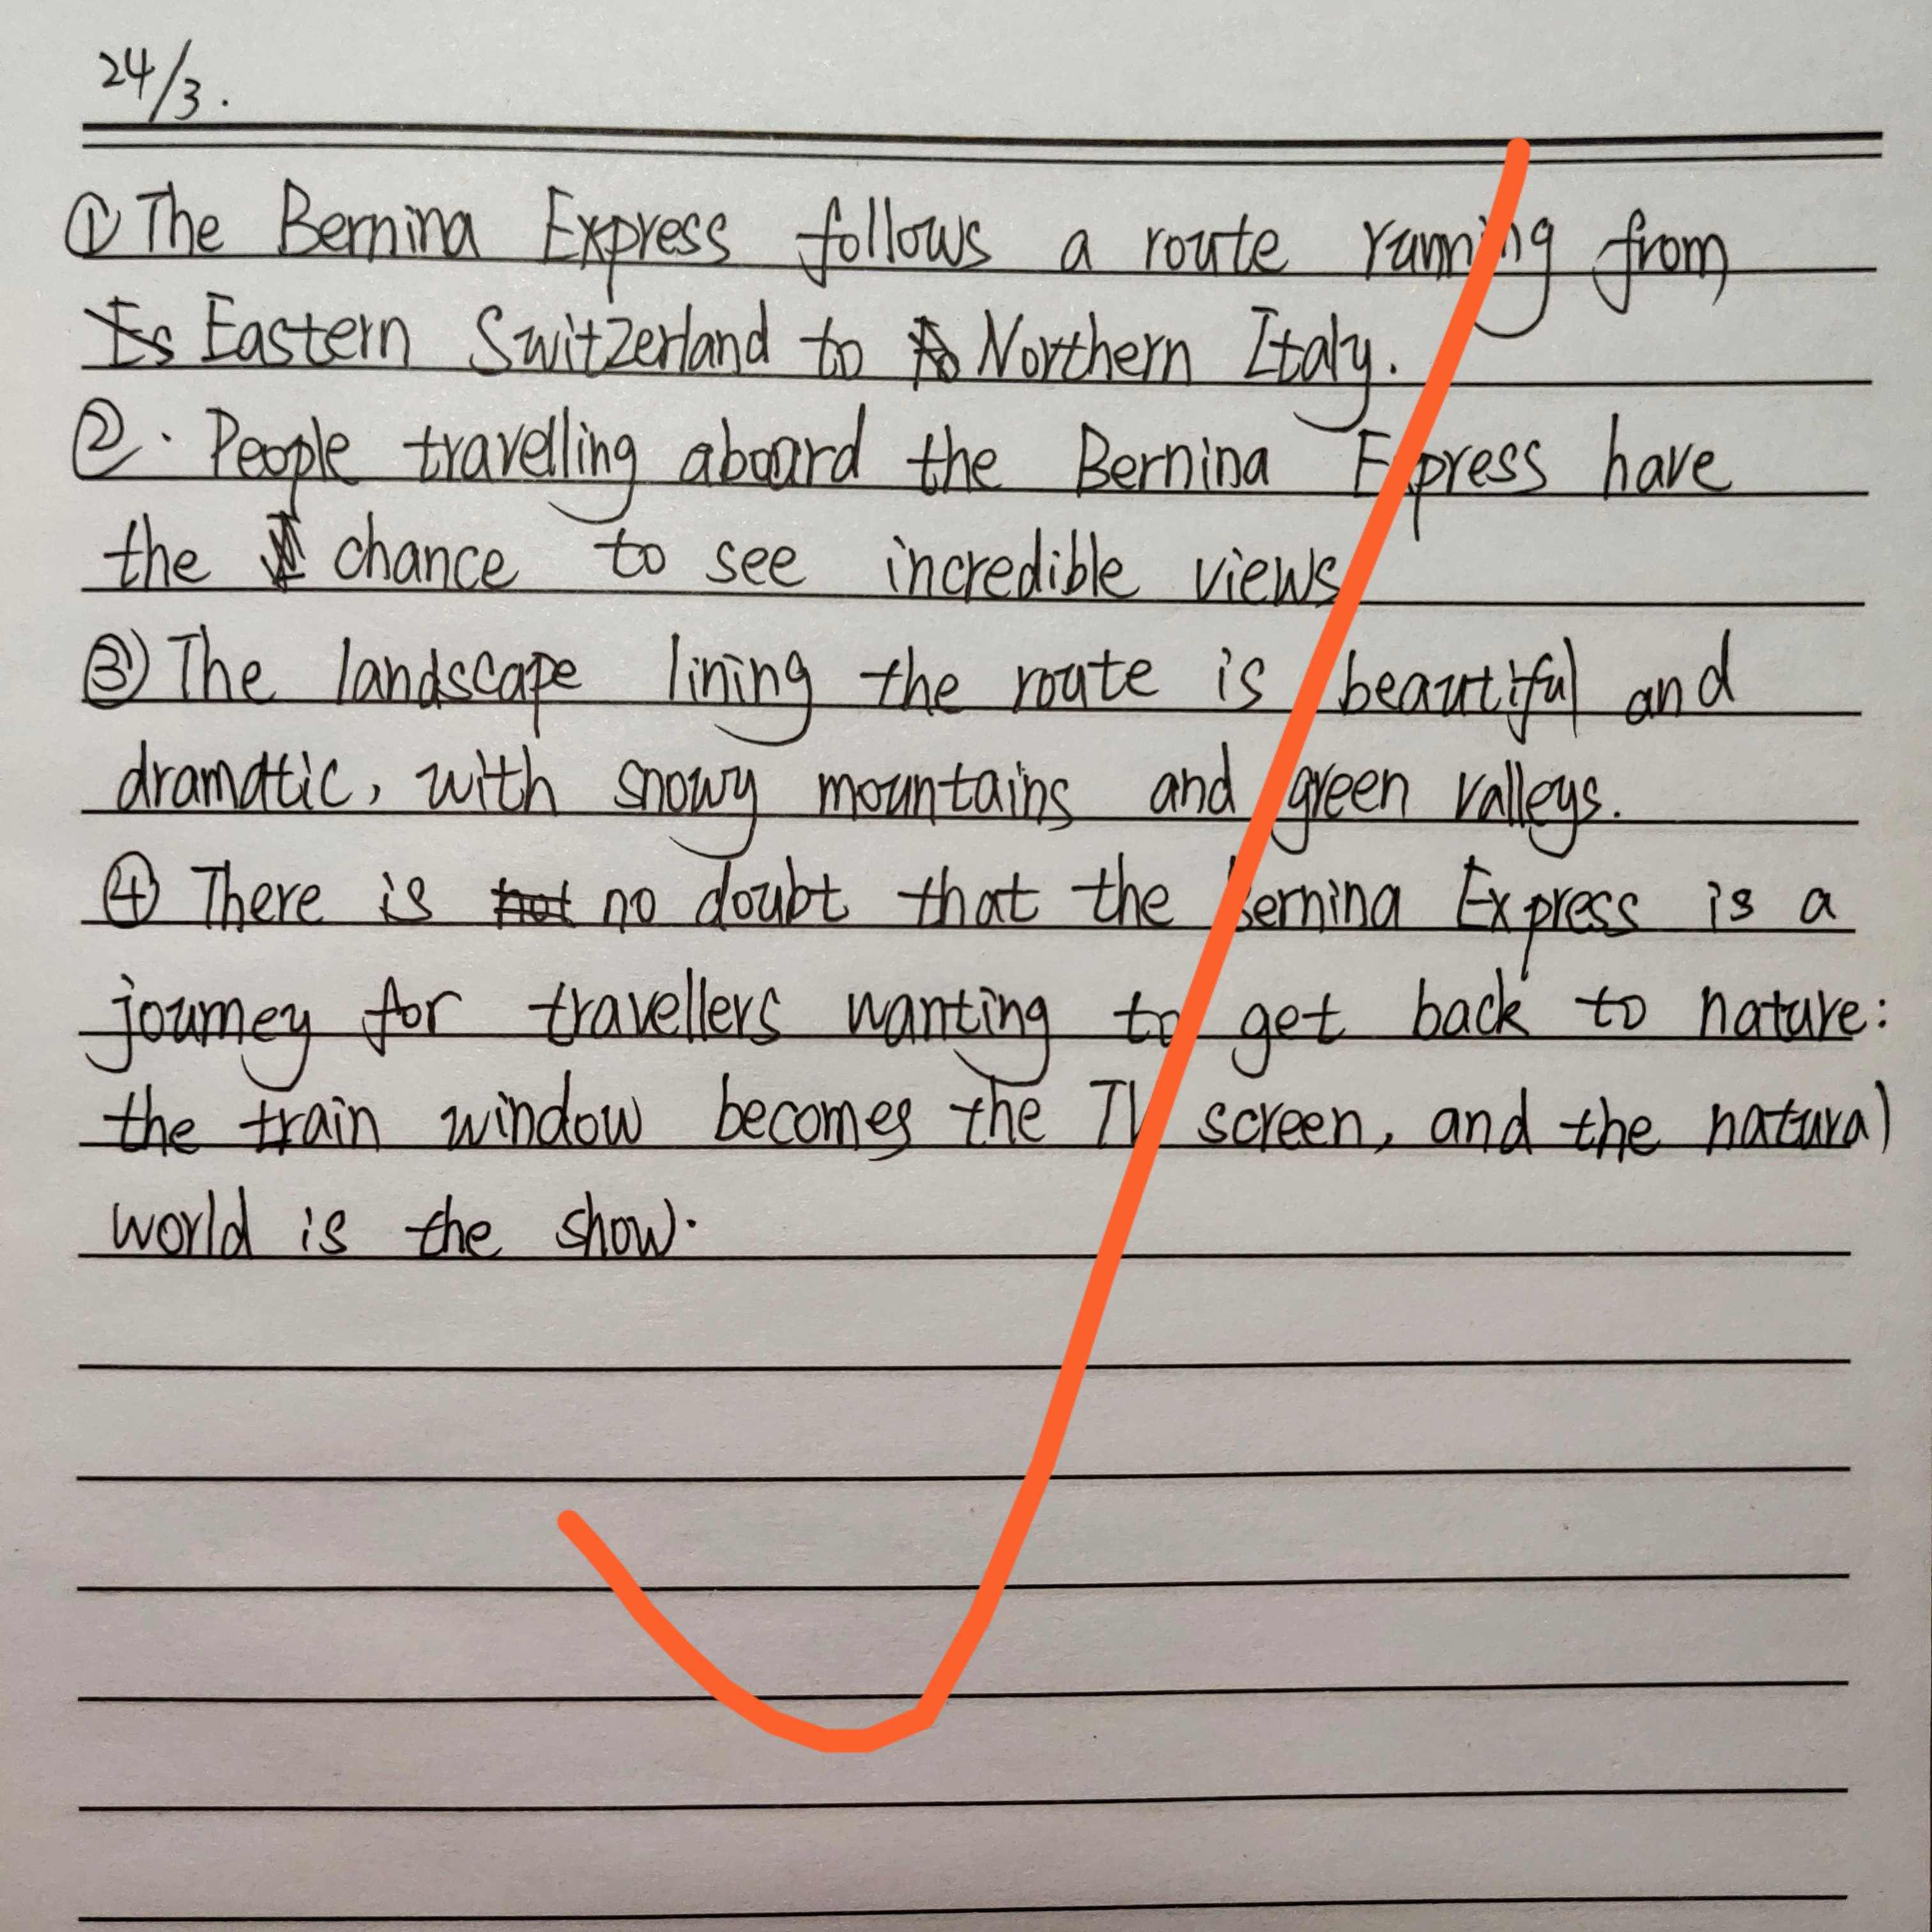 24/3.
①The Bernina Express follows a route running from
Es Eastern Switzerland to No Northern Italy.
②. People travelling aboard the Bernina Express have
the chance to see incredible views
③ The landscape lining the route is beautiful and
dramatic, with snowy mountains and green valleys.
④ There is not no doubt that the Bernina Express is a
journey for travellers wanting to get back to nature:
the train window becomes the TV screen, and the natural
world is the show.